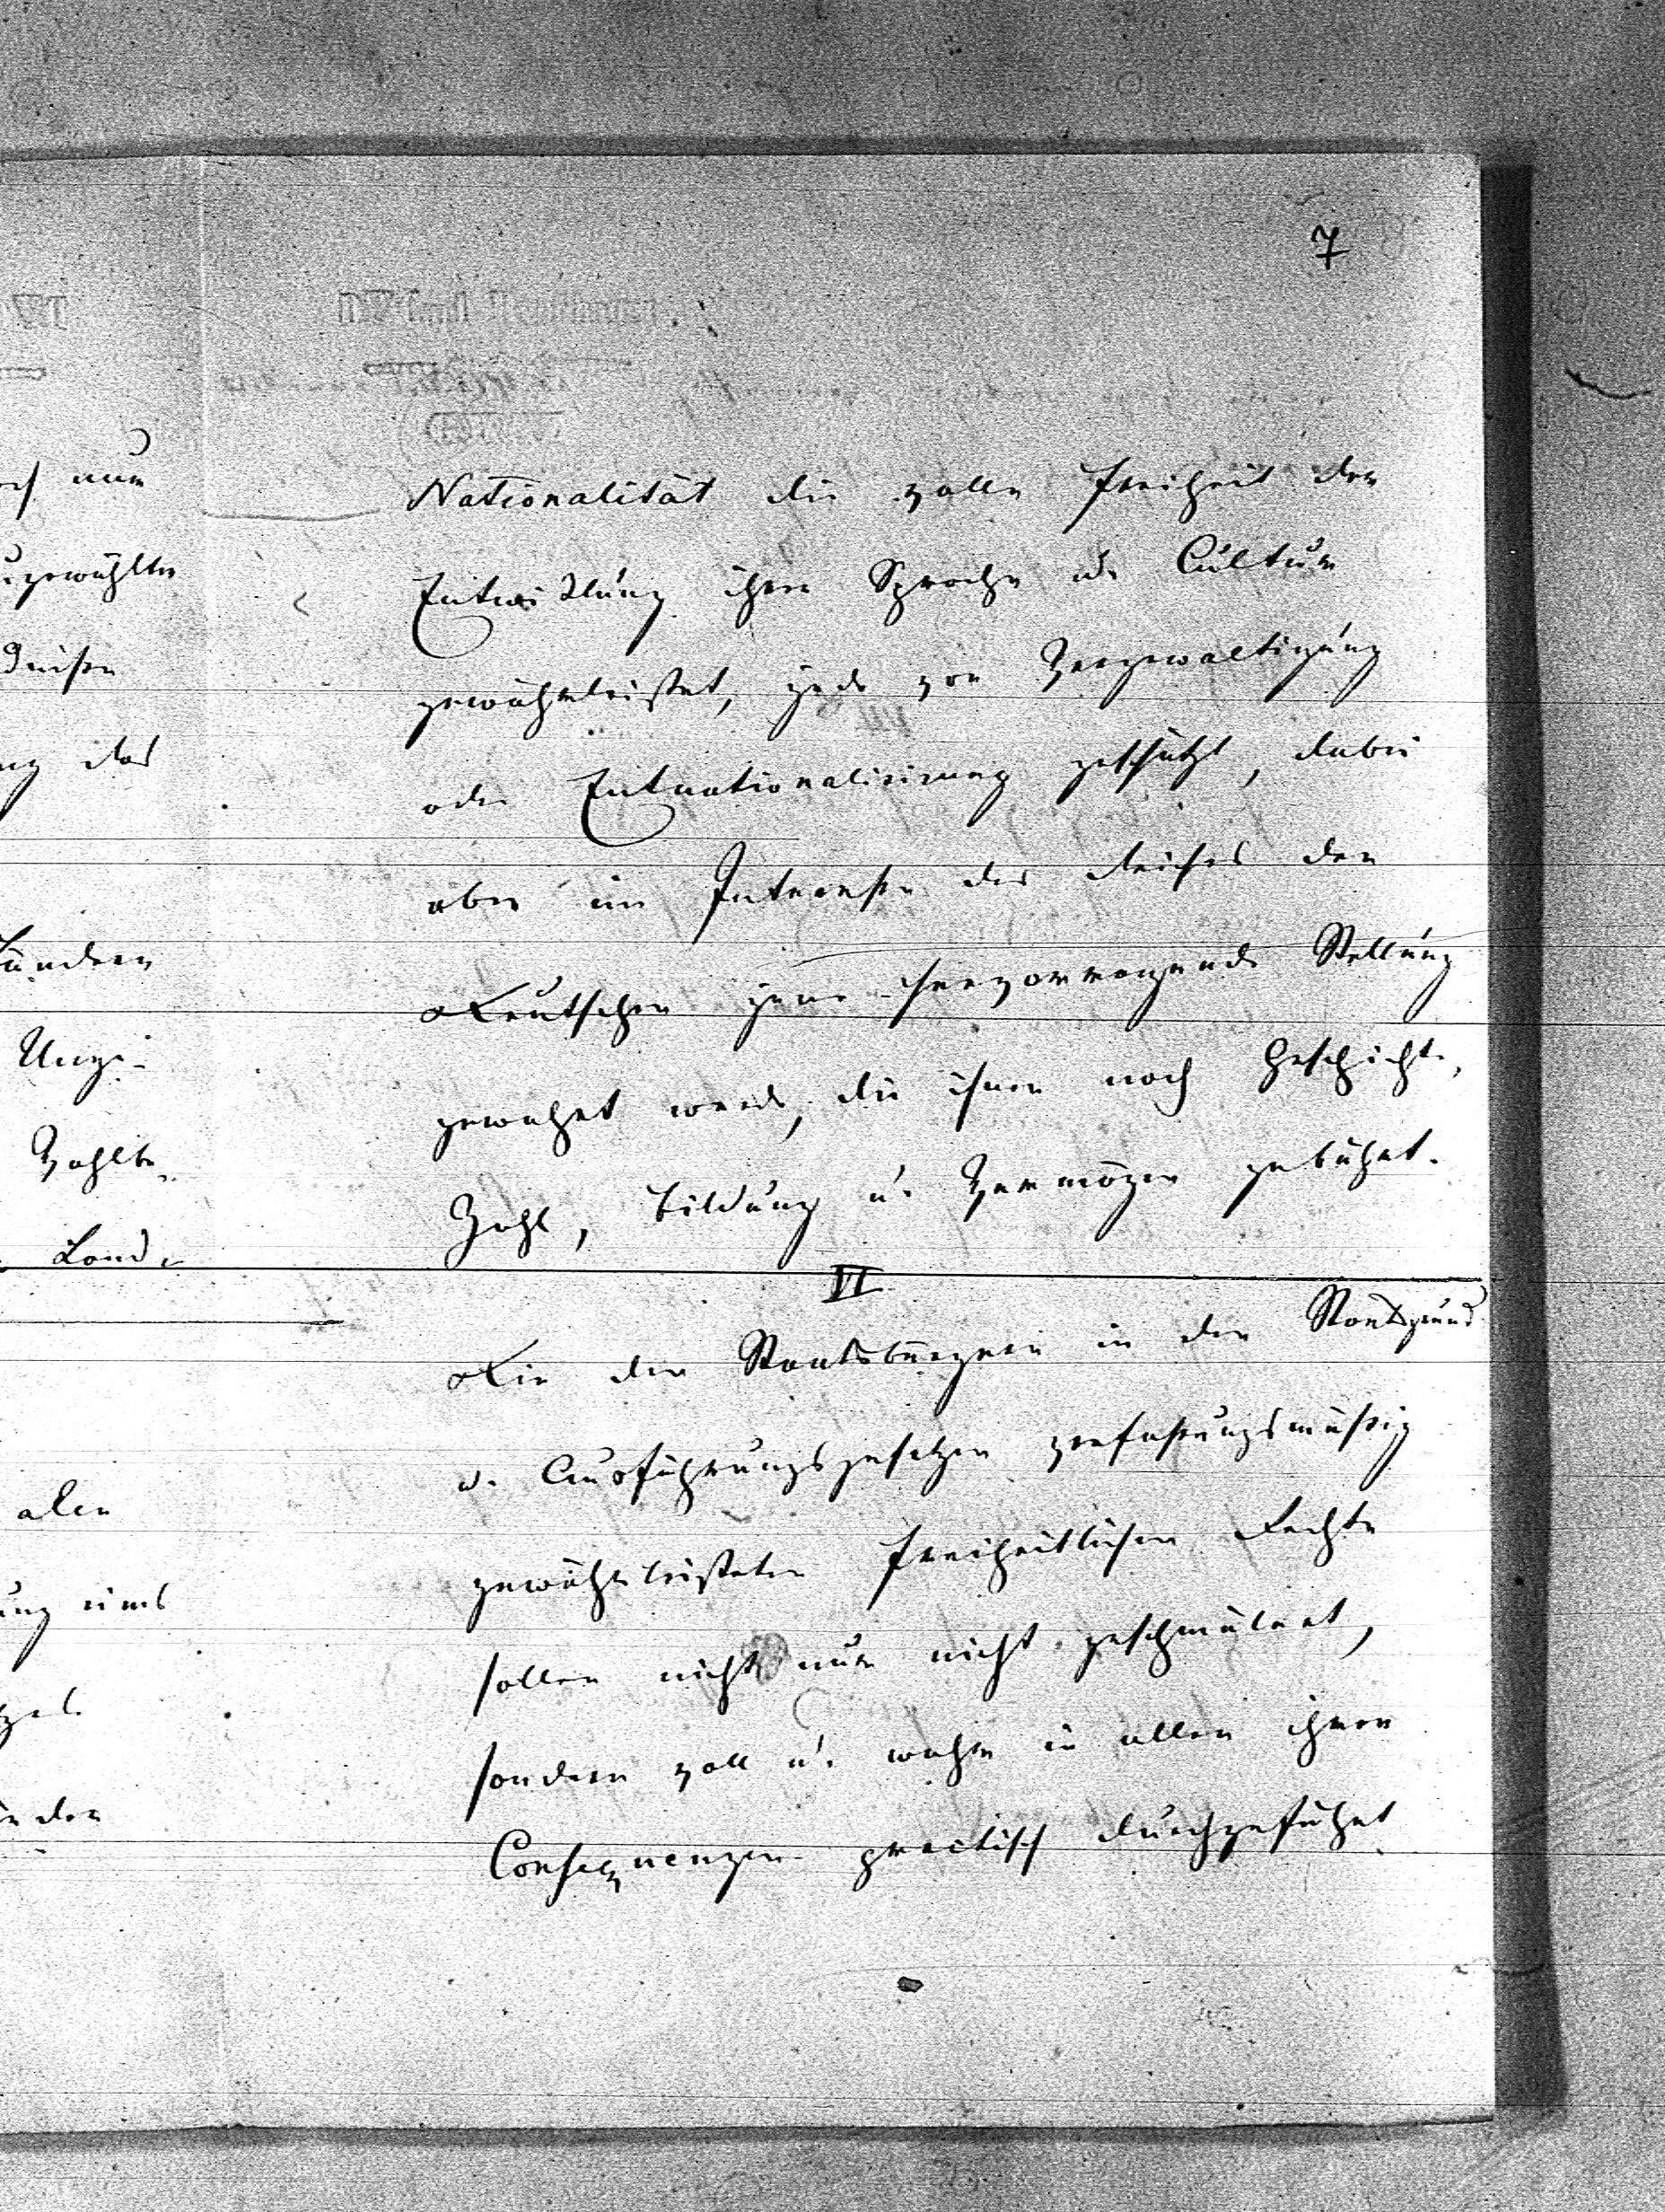 7
Nationalität die volle Freiheit der
Entwicklung ihrer Sprache u. Cultur
gewährleistet, jede vor Vergewaltigung
oder Entnationalisirung geschützt, dabei
aber im Interesse des Reiches den
Deutschen jene hervorragende Stellung
gewahrt werde, die ihnen nach Geschichte,
Zahl, Bildung u. Vermögen gebührt.
VI
Die den Staatsbürgern in den Staatsgrund
u. Ausführungsgesetzen verfassungsmäßig
gewährleisteten freiheitlichen Rechte
sollen nicht nur nicht geschmälert,
sondern voll u. wahr in allen ihren
Consequenzen practisch durchgeführt
nur
gewählten
das
Ländern
Land
eines